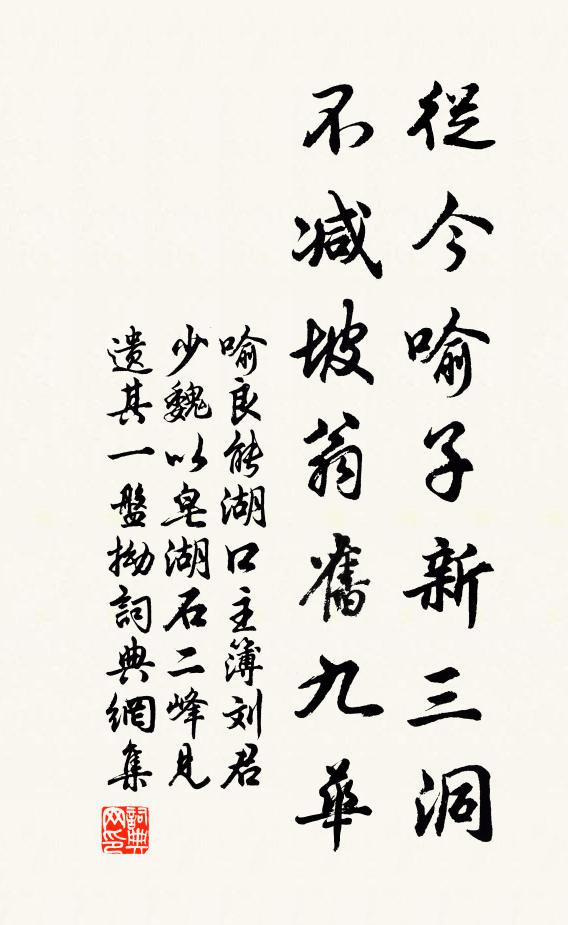 從今喻子新三洞
不減坡翁舊九華
喻良能湖口主簿刘君
少魏以皂湖石二峰見
遺其一盤拗詞典網集
詞典网印